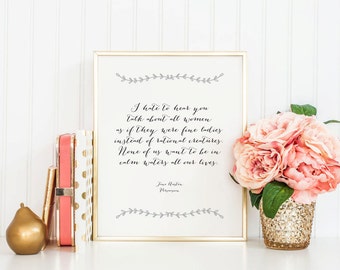 I hate to hear you
talk about all women
as if they were fine ladies
instead of rational creatures.
None of us want to be in
calm waters all our lives.
Jane Austen
Persuasion